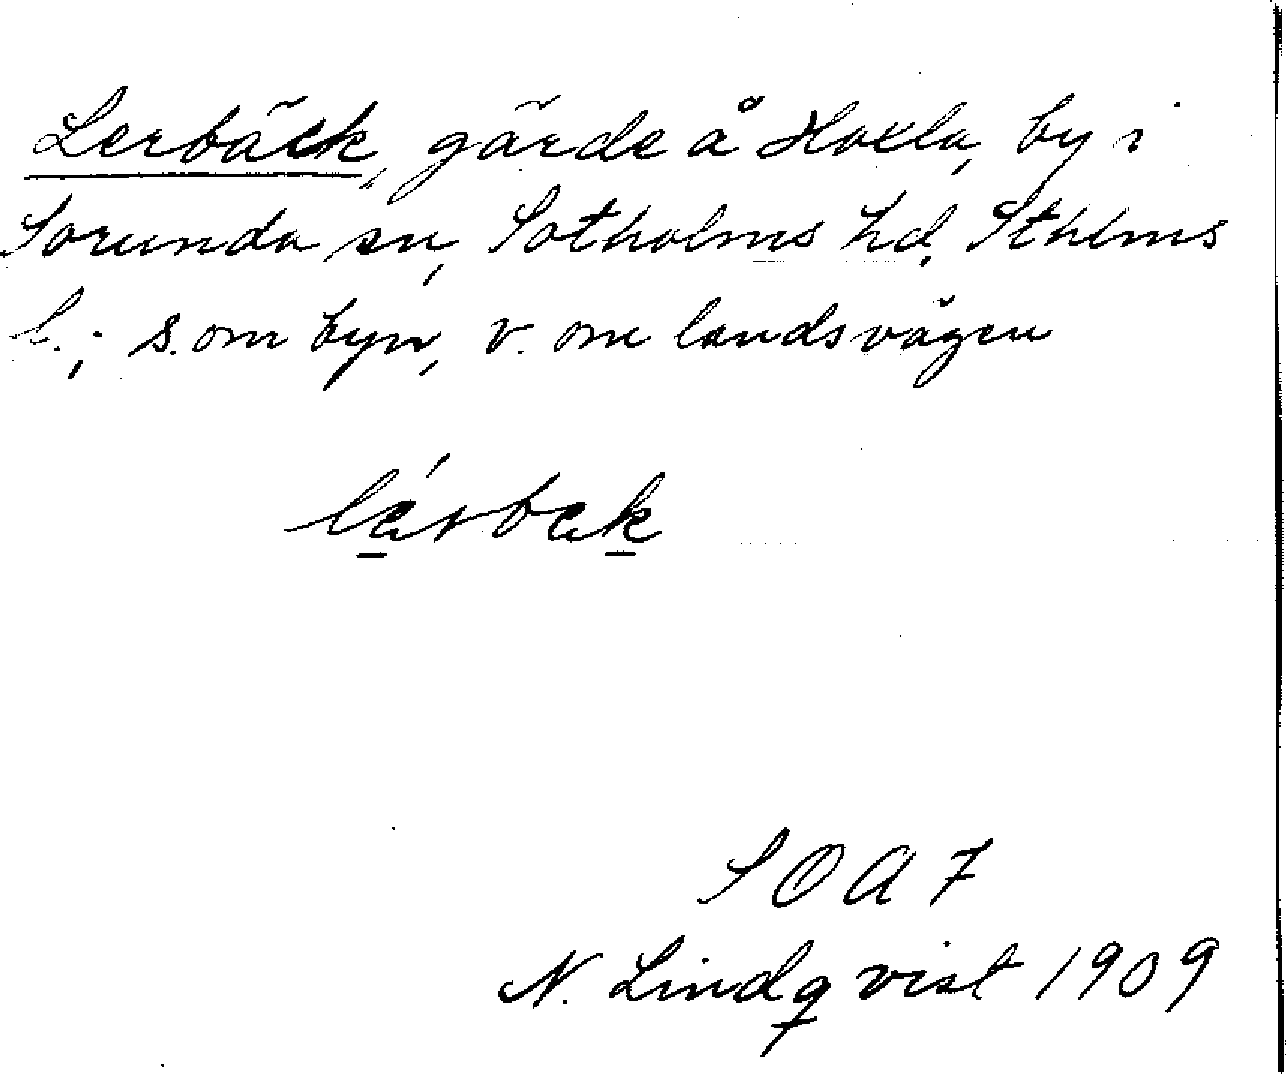 Lerbäck, gärde å Hoxla, by i
Sorunda sn, Sotholms hd, Sthlms
l.; s. om byn, v. om landsvägen
lérbek
SOA 7
N. Lindqvist 1909